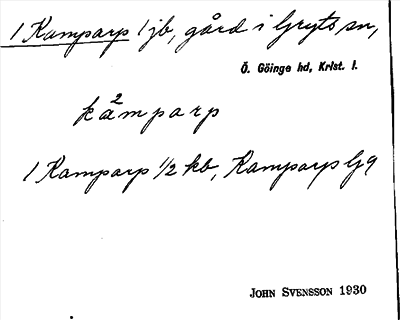 1 Kamparp 1 jb, gård i Gryts sn,
Ö. Göinge hd, Krist. l.
ka²mparp
1 Kamparp 1/2 kb, Kamparps Gg
JOHN SVENSSON 1930